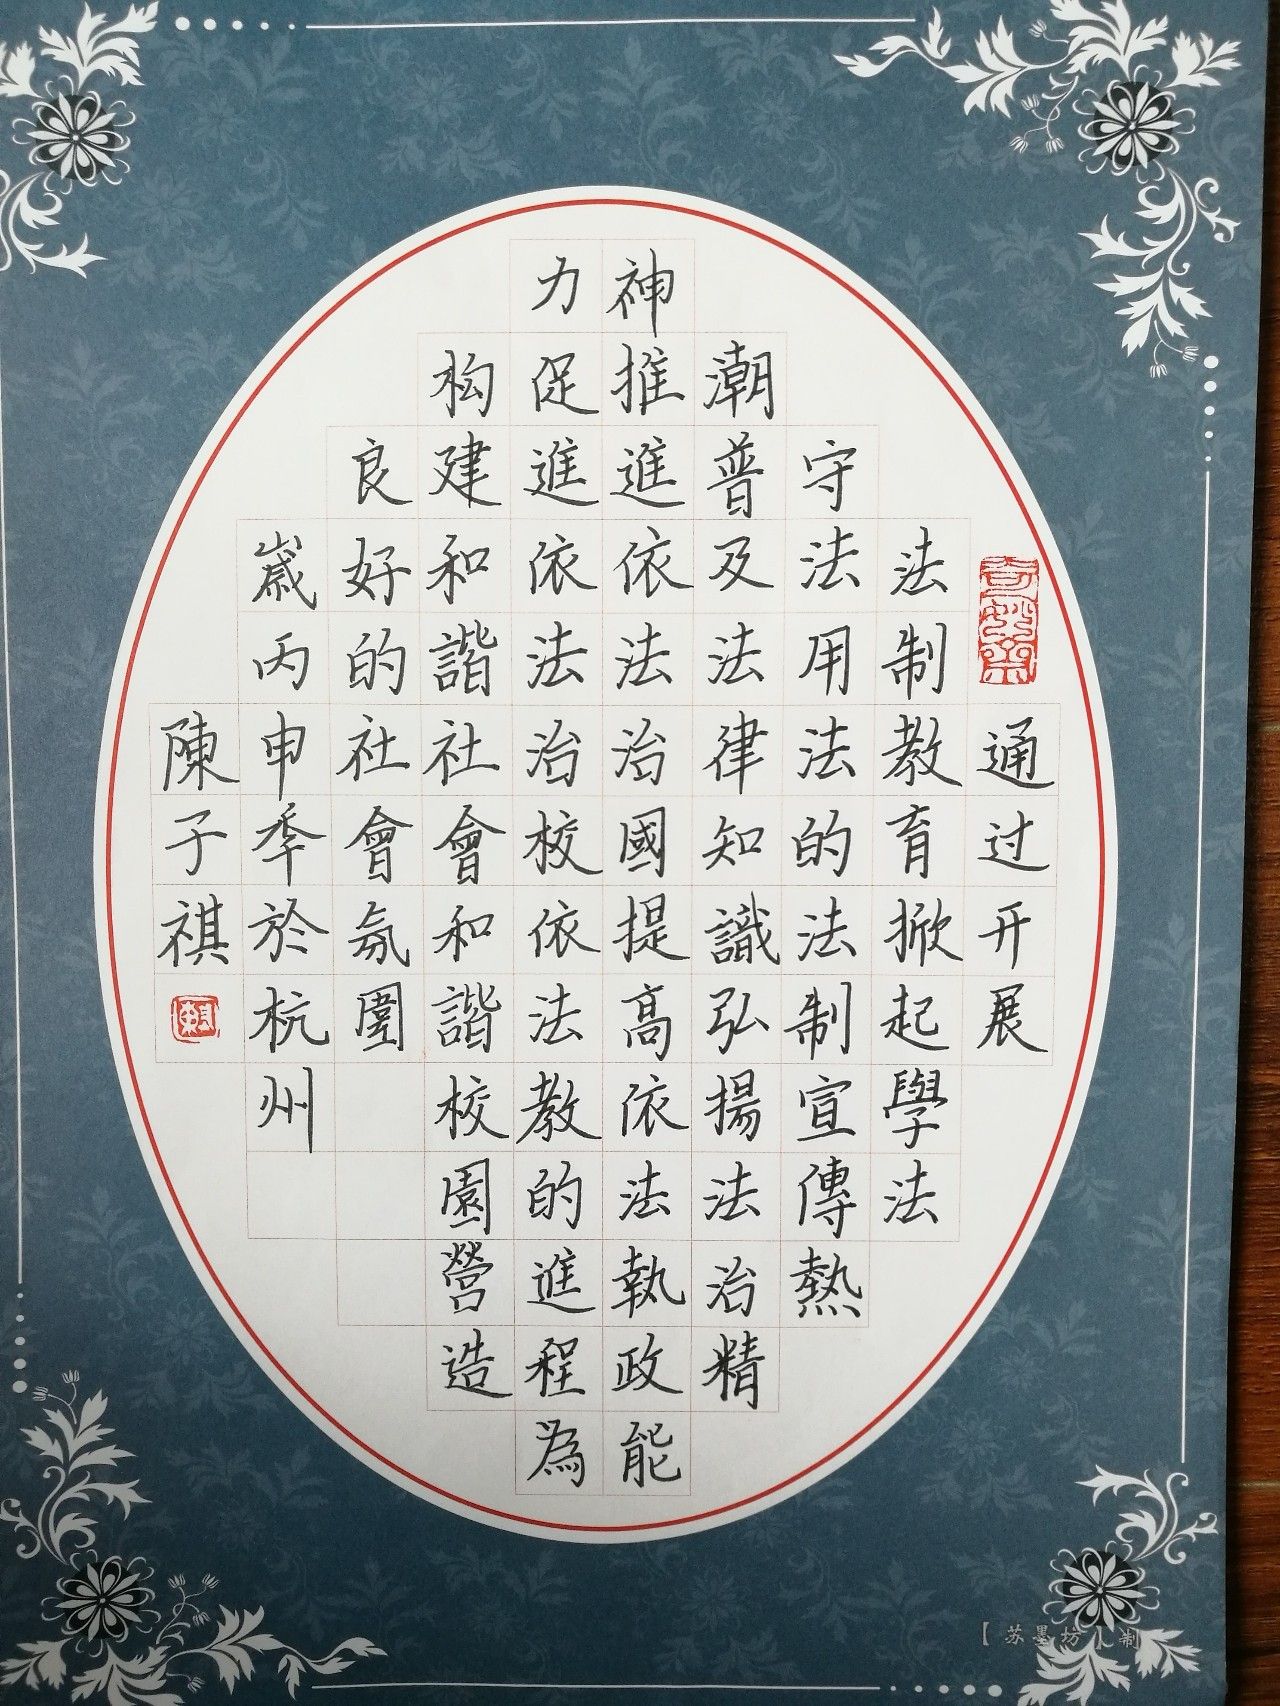 通过开展
法制教育掀起學法
守法用法的法制宣傳熱
潮普及法律知識弘揚法治精
神推進依法治國提高依法執政能
力促進依法治校依法教的進程為
构建和諧社會和諧校園營造
良好的社會氛圍
歲丙申秊於杭州
陳子祺
【苏墨坊】制